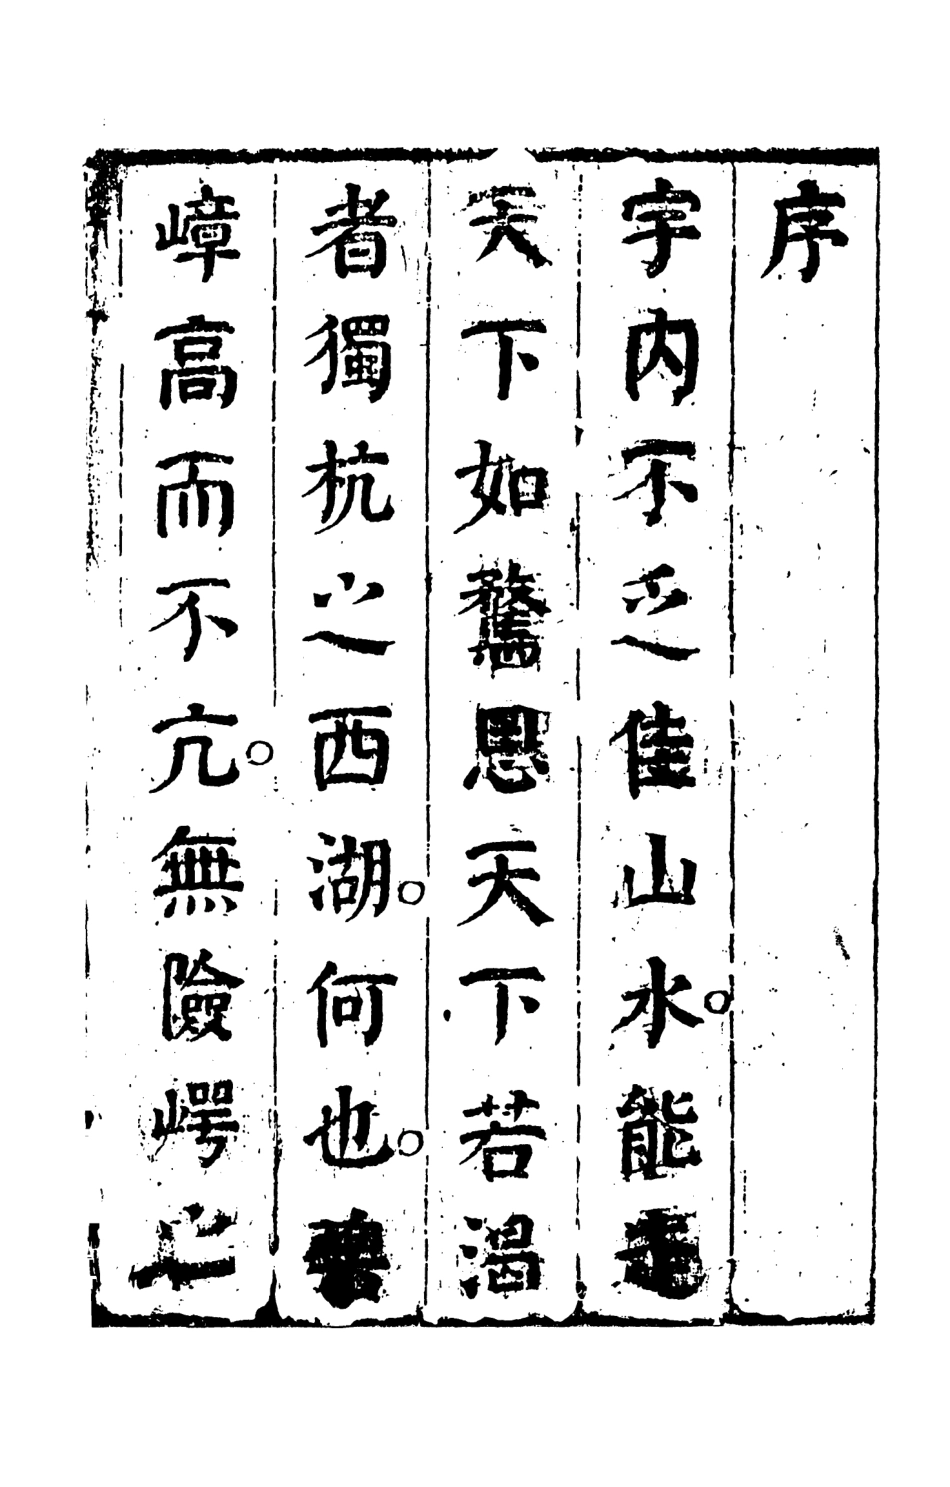 序
宇内不乏佳山水能
天下如騖思天下若渴
者獨杭之西湖何也
嶂高而不亢無險崿